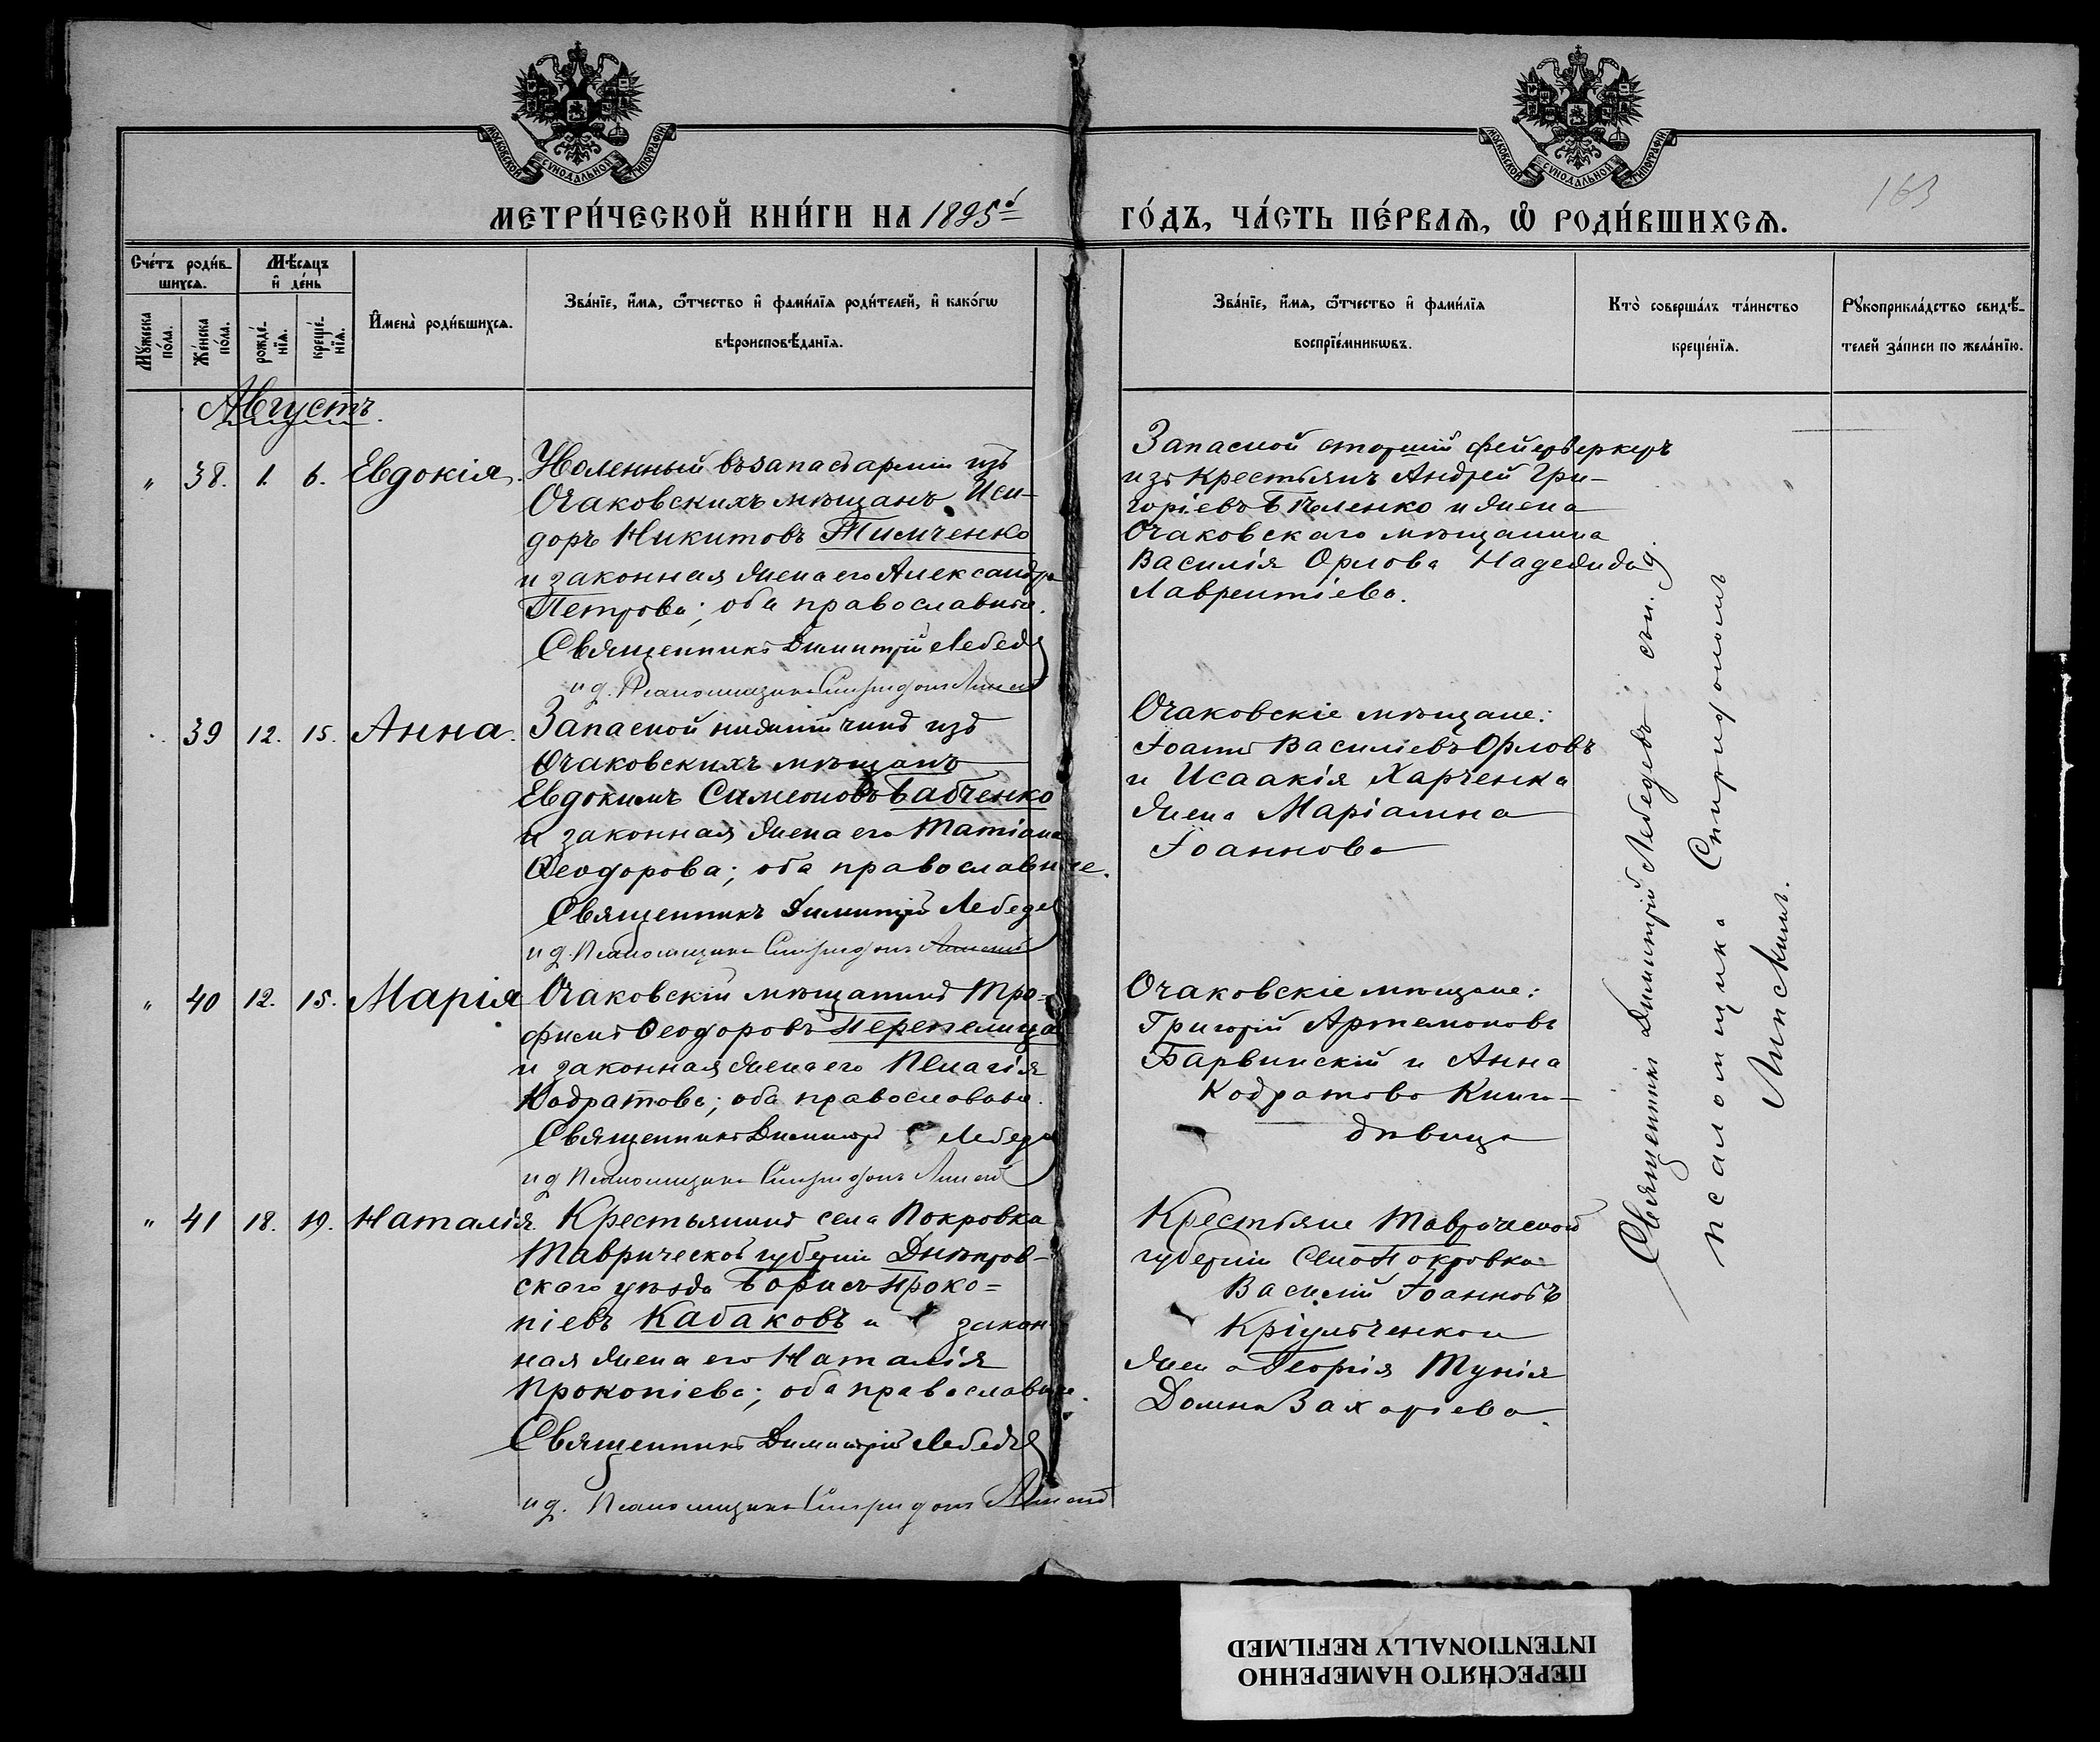 МОСКОВСКОЙ СУНОДАЛЬНОЙ ТИПОГРАФІИ
МОСКОВСКОЙ СУНОДАЛЬНОЙ ТИПОГРАФІИ
163
МЕТРИ́ЧЕСКОЙ КНИ́ГИ НА 1895й
ГО́ДЪ, ЧА́СТЬ ПЕ́РВАѦ, Ѽ РОДИ́ВШИХСѦ.
Сче́тъ роди́в-
шихсѧ.
Мѣ́сяцъ
и҆ де́нь
Му́жеска по́ла.
Же́нска по́ла.
рожде́-нїѧ.
креще́-нїѧ.
И҆мена̀ роди́вшихсѧ.
Зва́нїе, и҆́мѧ, ѻ҆́тчество и҆ фами́лїѧ роди́телей, и҆ како́гѡ
вѣроисповѣ́данїѧ.
Зва́нїе, и҆́мѧ, ѻ҆́тчество и҆ фами́лїѧ
воспрїе́мникѡвъ.
Кто̀ соверша́лъ та́инство
креще́нїѧ.
Рꙋкоприкла́дство свидѣ́-
телей за́писи по жела́нїю.
Августъ.
" 38. 1. 6. Евдокія.
Уволенный въ запасъ арміи изъ
Очаковскихъ мѣщанъ Иси-
доръ Никитовъ Тимченко
и законная жена его Александра
Петрова; оба православные.
Священникъ Димитрій Лебедевъ
и д. Псаломщика Спиридонъ Липскій
Запасной старшій фейерверкеръ
изъ крестьянъ Андрей Гри-
горіевъ Бѣленко и жена
Очаковскаго мѣщанина
Василія Орлова Надежда
Лаврентіева.
39 12. 15. Анна.
Запасной нижній чинъ изъ
Очаковскихъ мѣщанъ
Евдокимъ Симеоновъ Бабченко
и законная жена его Татіана
Ѳеодорова; оба православные.
Священникъ Димитрій Лебедевъ
и д. Псаломщика Спиридонъ Липскій
Очаковскіе мѣщане:
Іоаннъ Василіевъ Орловъ
и Исаакія Харченка
жена Маріамна
Іоаннова
" 40 12. 15. Марія
Очаковскій мѣщанинъ Тро-
фимъ Ѳеодоровъ Перепелица
и законная жена его Пелагія
Кодратова; оба православные.
Священникъ Димитрій Лебедевъ
и д Псаломщика Спиридонъ Липскій
Очаковскіе мѣщане:
Григорій Артемоновъ
Барвинскій и Анна
Кодратова Книга-
дѣвица
" 41 18. 19. Наталія.
Крестьянинъ села Покровка
Таврической губерніи Днѣпров-
скаго уѣзда Борисъ Проко=
піевъ Кабаковъ и закон-
ная жена его Наталія
Прокопіева; оба православные.
Священникъ Димитрій Лебедевъ
и д. Псаломщика Спиридонъ Липскій
Крестьяне Таврической
губерніи села Покровка
Василій Іоанновъ
и
жена Георгія
Домна Захаріева.
Священникъ Димитрій Лебедевъ съ и. д.
псаломщика Спиридономъ
Липскимъ.
ПЕРЕСНЯТО НАМЕРЕННО
INTENTIONALLY REFILMED